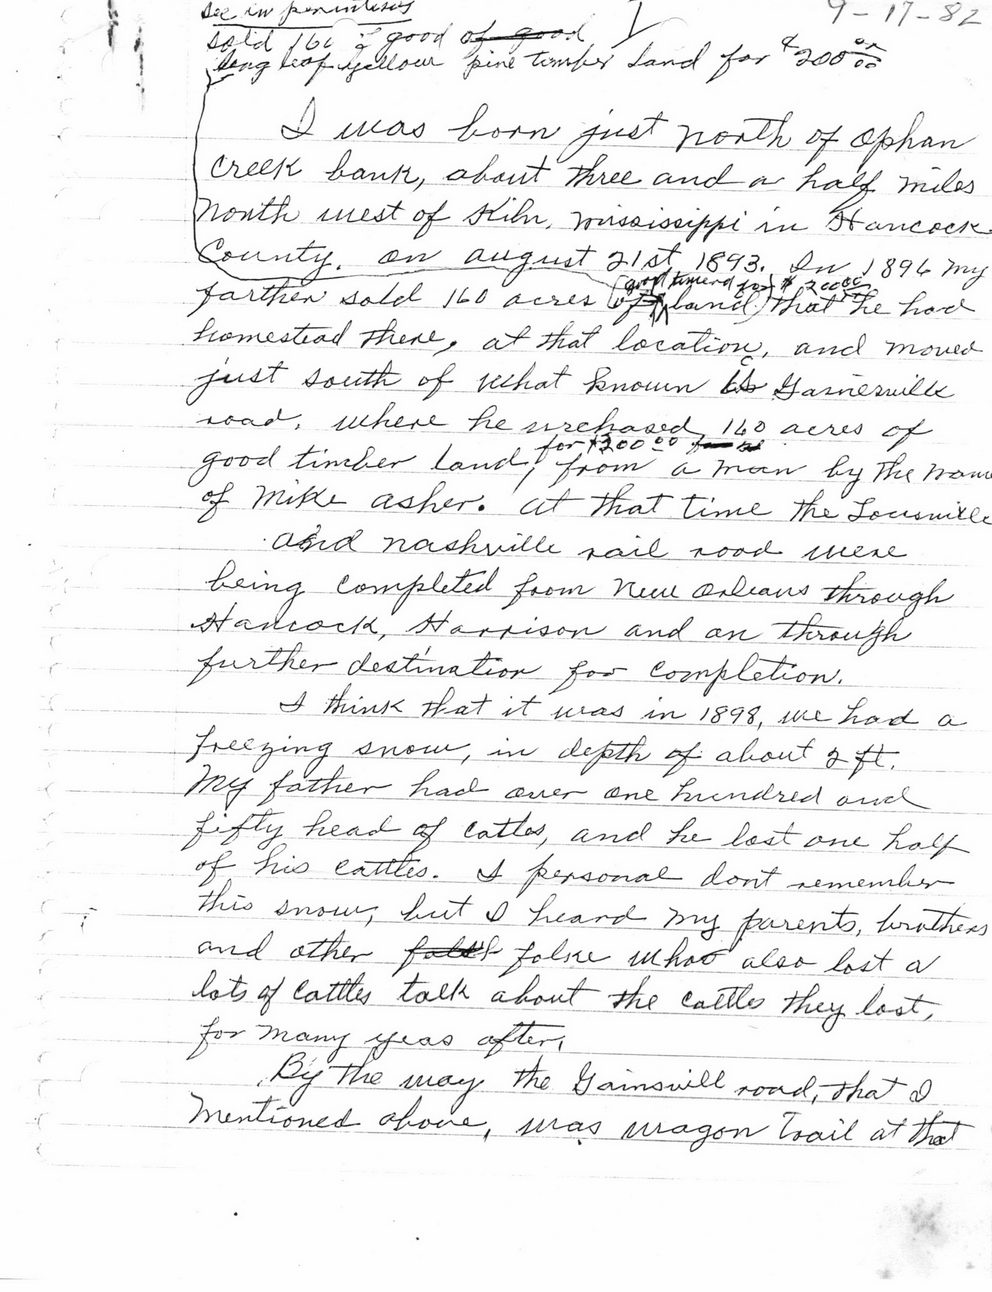 see in parentises
9-17-82
sold 160 of good of good
long leaf yellow pine timber land for $200 00/00
I was born just north of Ophan
Creek bank, about three and a half miles
North west of Kiln, Mississippi in Hancock
County. on august 21st 1893. In 1896 my
good timerd for $200 00
farther sold 160 acres of land) that he had
homestead there, at that location, and moved
just south of what known as Gainesville
road. where he urchased 160 acres of
for $200 00
good timber land, from a man by the name
of Mike asher. at that time the Lousville
and nashville rail road were
being completed from New Orleans through
Hancock, Harrison and on through
further destination for completion.
I think that it was in 1898, we had a
freezing snow, in depth of about 2 ft.
My father had over one hundred and
fifty head of cattles, and he lost one half
of his cattles. I personal dont remember
this snow, but I heard my parents, brothers
and other folke who also lost a
lots of cattles talk about the cattles they lost,
for many yeas after.
By the way the Gainsvill road, that I
mentioned above, was wagon trail at that